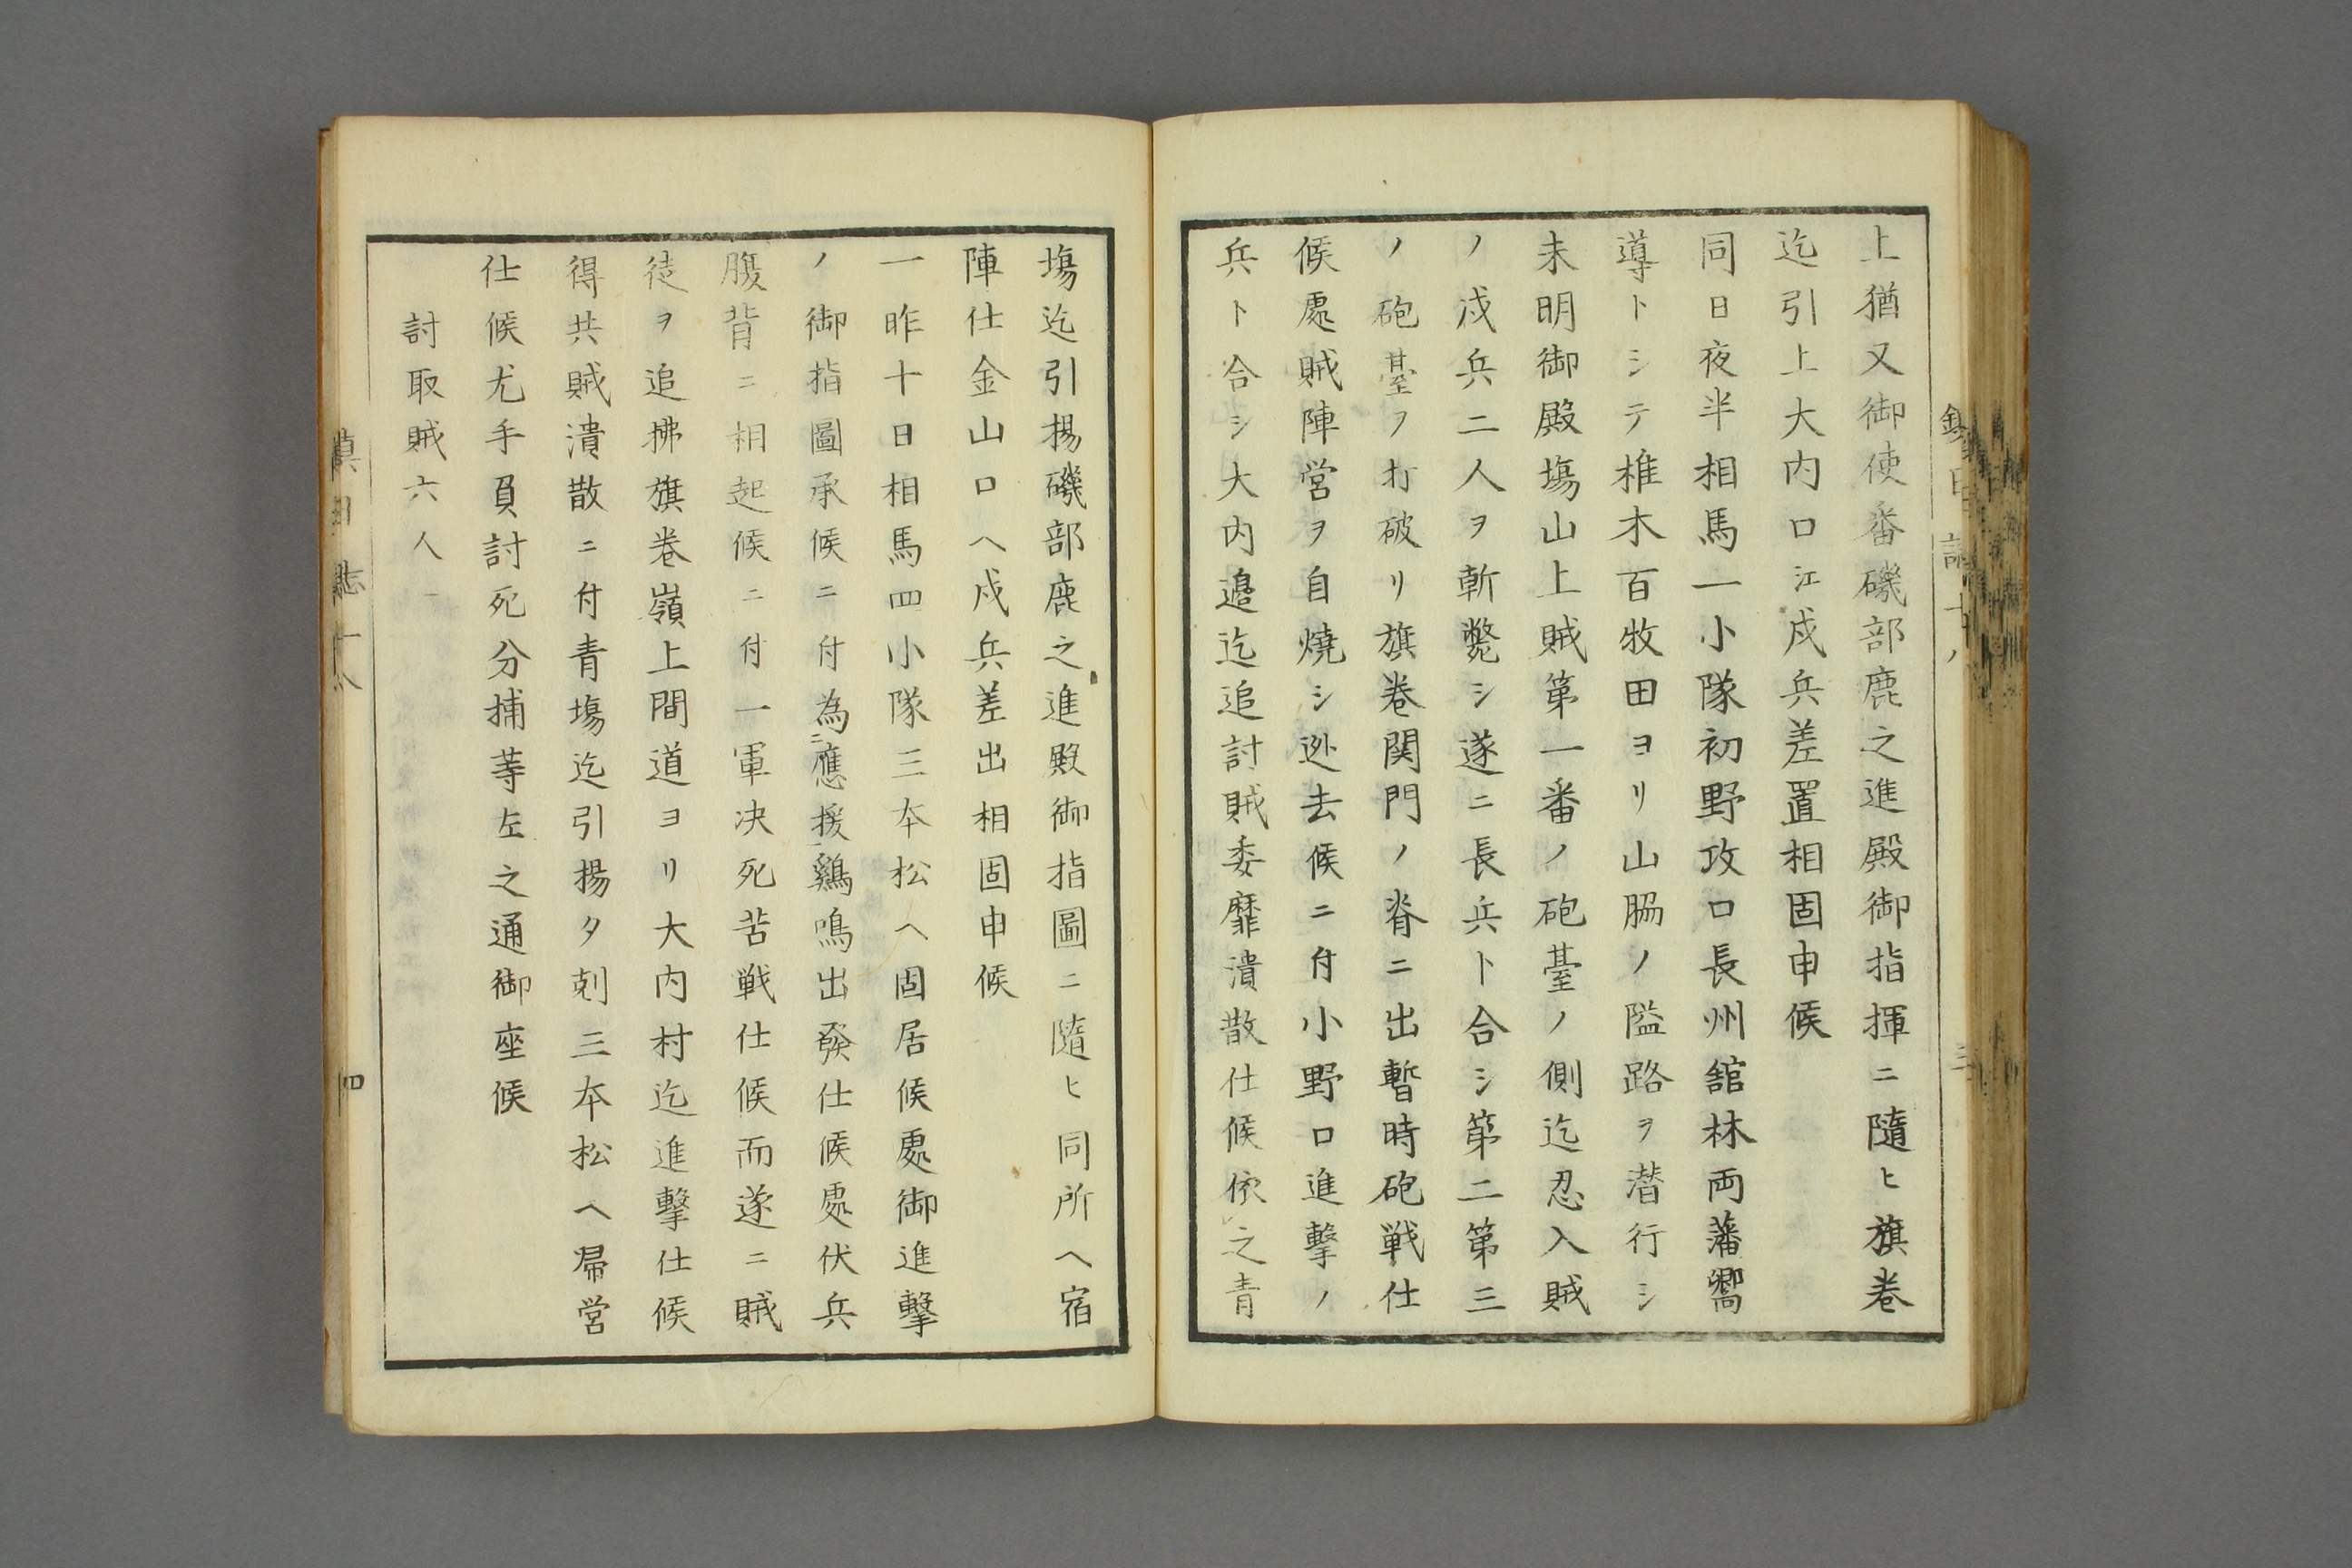 上猶又御使番磯部鹿之進殿御指揮ニ隨ヒ旗巻
迄引上大内口江戍兵差置相固申候
同日夜半相馬一小隊初野攻口長州舘林両藩嚮
導トシテ椎木百牧田ヨリ山脇ノ隘路ヲ潜行シ
未明御殿塲山上賊第一番ノ砲䑓ノ側迄忍入賊
ノ戍兵二人ヲ斬斃シ遂ニ長兵ト合シ第二第三
ノ砲䑓ヲ打破リ旗巻関門ノ脊ニ出暫時砲戦仕
候處賊陣営ヲ自燒シ迯去候ニ付小野口進擊ノ
兵ト合シ大内邉迄追討賊委靡潰散仕候依之青
塲迄引揚磯部鹿之進殿御指圖ニ隨ヒ同所ヘ宿
陣仕金山口ヘ戍兵差出相固申候
一昨十日相馬四小隊三本松ヘ固居候處御進擊
ノ御指圖承候ニ付為ニ應援鷄鳴出發仕候處伏兵
腹背ニ相起候ニ付一軍决死苦戦仕候而遂ニ賊
徒ヲ追拂旗巻嶺上間道ヨリ大内村迄進擊仕候
得共賊潰散ニ付青塲迄引揚夕剋三本松ヘ帰営
仕候尤手負討死分捕等左之通御座候
討取賊六人
鎮日誌十八
三
鎮日誌十八
四